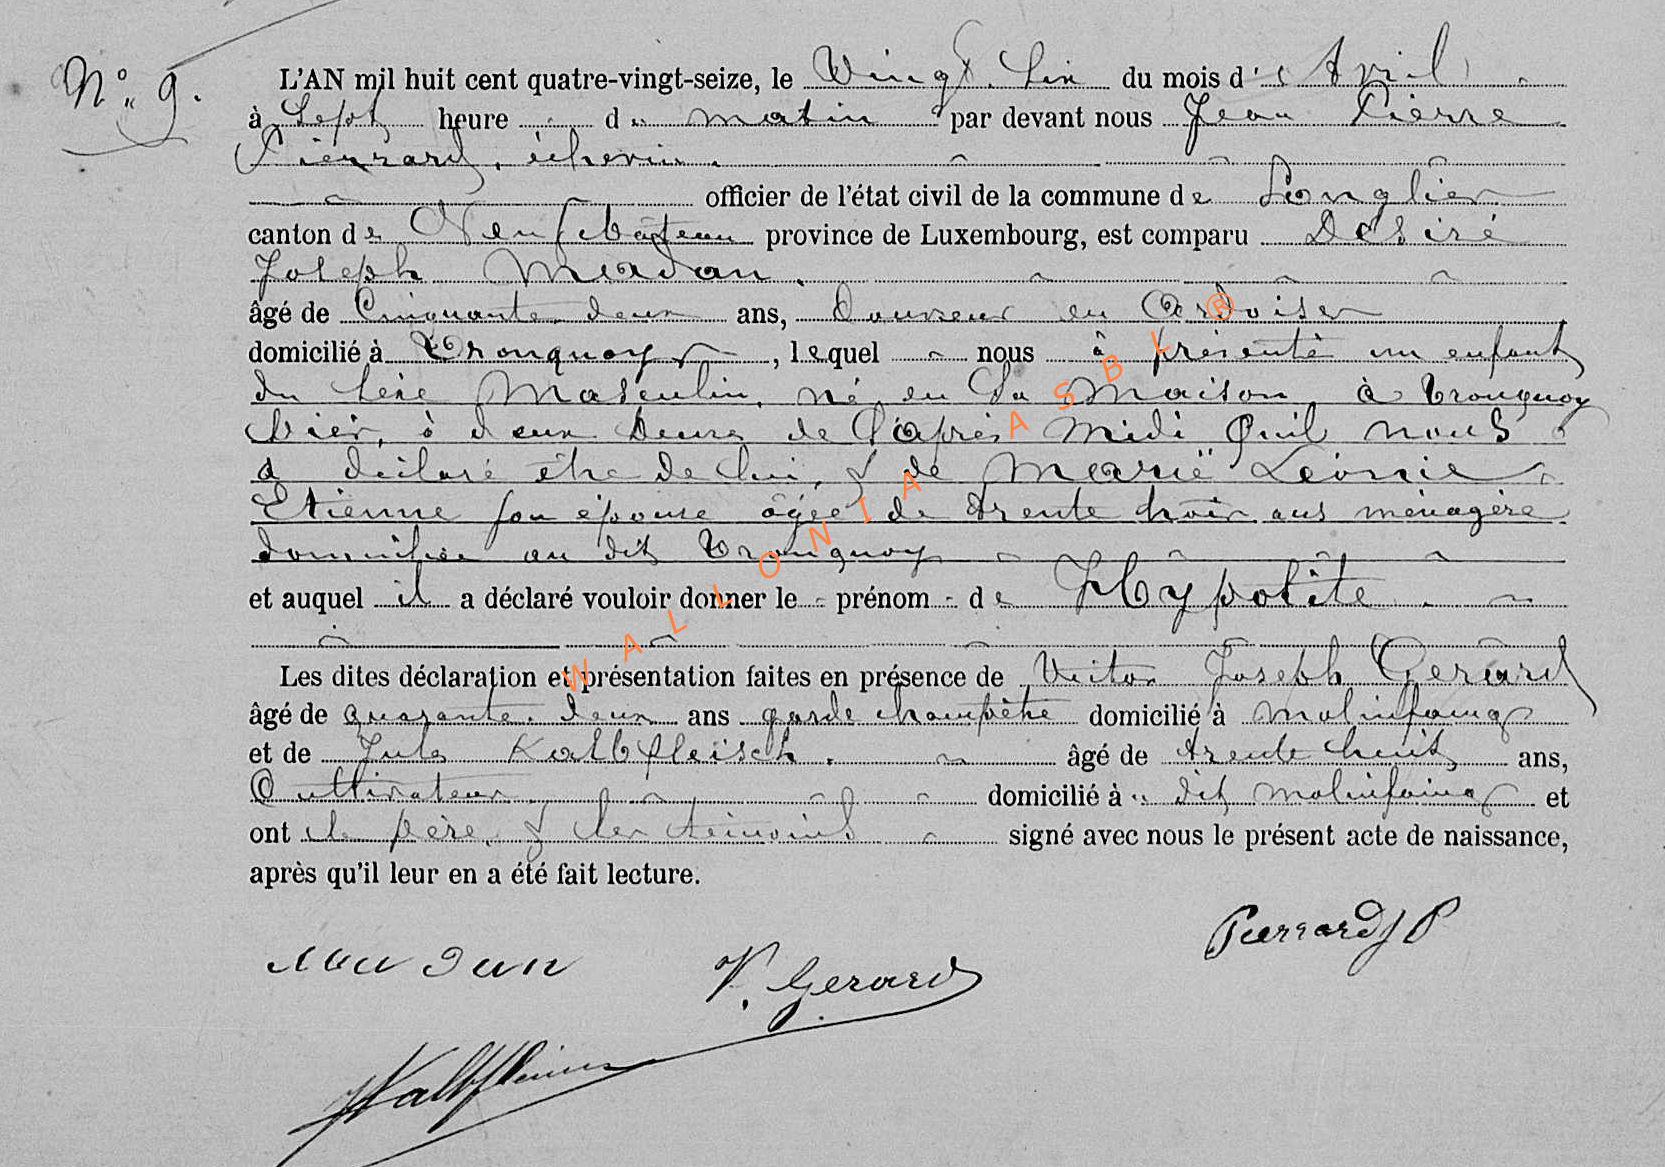 N° 9.
L'AN mil huit cent quatre-vingt-seize, le Vingt Six du mois d'Avril
à Sept heure du matin par devant nous Jean Pierre
Pierrard, échevin
officier de l'état civil de la commune de Longlier
canton de Neufchâteau province de Luxembourg, est comparu Désiré
Joseph Madan
âgé de Cinquante deux ans, Couvreur en Ardoises
domicilié à Tronquoy, lequel nous à présenté un enfant
du sexe Masculin, né en Sa Maison à Tronquoy
hier, à deux heures de l'après Midi Qu'il nous
a déclaré être de lui, & de Marië Léonie
Etienne son épouse âgée de trente trois ans ménagère
domiciliée au dit Tronquoy
et auquel il a déclaré vouloir donner le prénom de Hypolite
Les dites déclaration et présentation faites en présence de Victor Joseph Gerard
âgé de quarante deux ans garde champêtre domicilié à Molinfaing
et de Jules Kalbfleisch. âgé de trente huit ans,
Cultivateur domicilié à dit Molinfaing et
ont le père & les témoins signé avec nous le présent acte de naissance,
après qu'il leur en a été fait lecture.
Pierrard J P
Madan
V. Gerard
WALLONIA ASBL ®